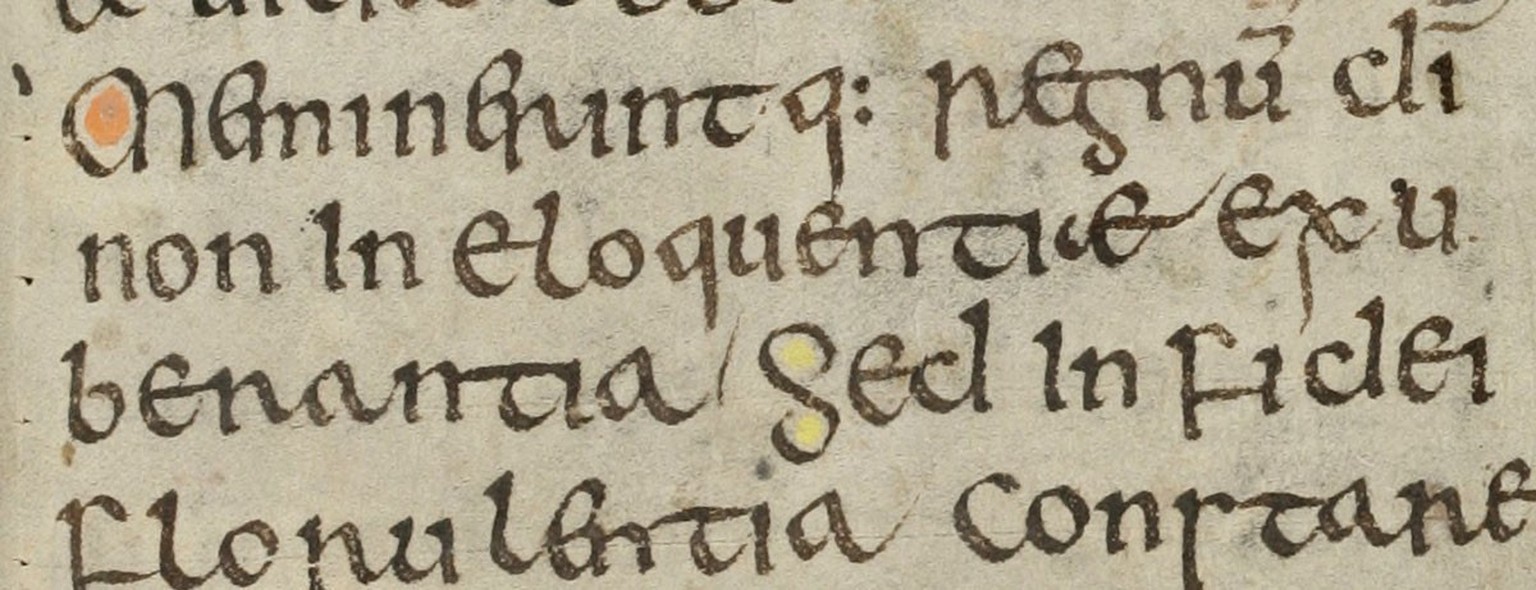 Meminerunt q: regnū dī
non In eloquentiae exu
benantia Sed In fidei
florulentia constare